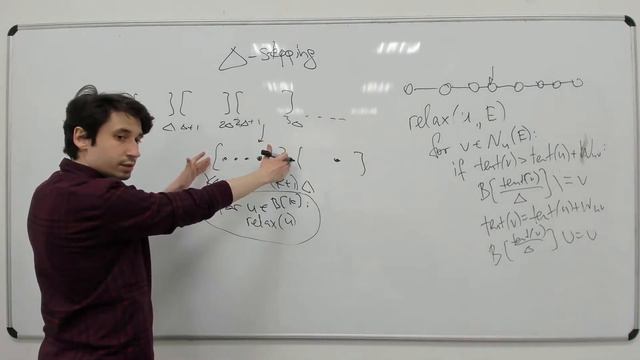 Δ-stepping
] [ ] [ ]
Δ Δ+1 2Δ 2Δ+1 3Δ ....
[ .... ] [ . ]
Δ
u ∈ B[k]:
relax(u)
relax(u, E)
for v ∈ Nu(E):
if tent(v) > tent(u) + Wuv:
B[tent(v)/Δ] \= v
tent(v) = tent(u) + Wuv
B[tent(v)/Δ] ∪= v